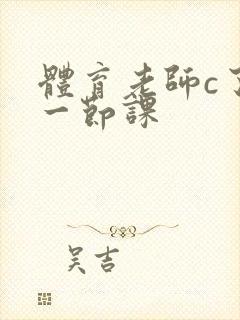 體育老師c了
一節課
吴吉